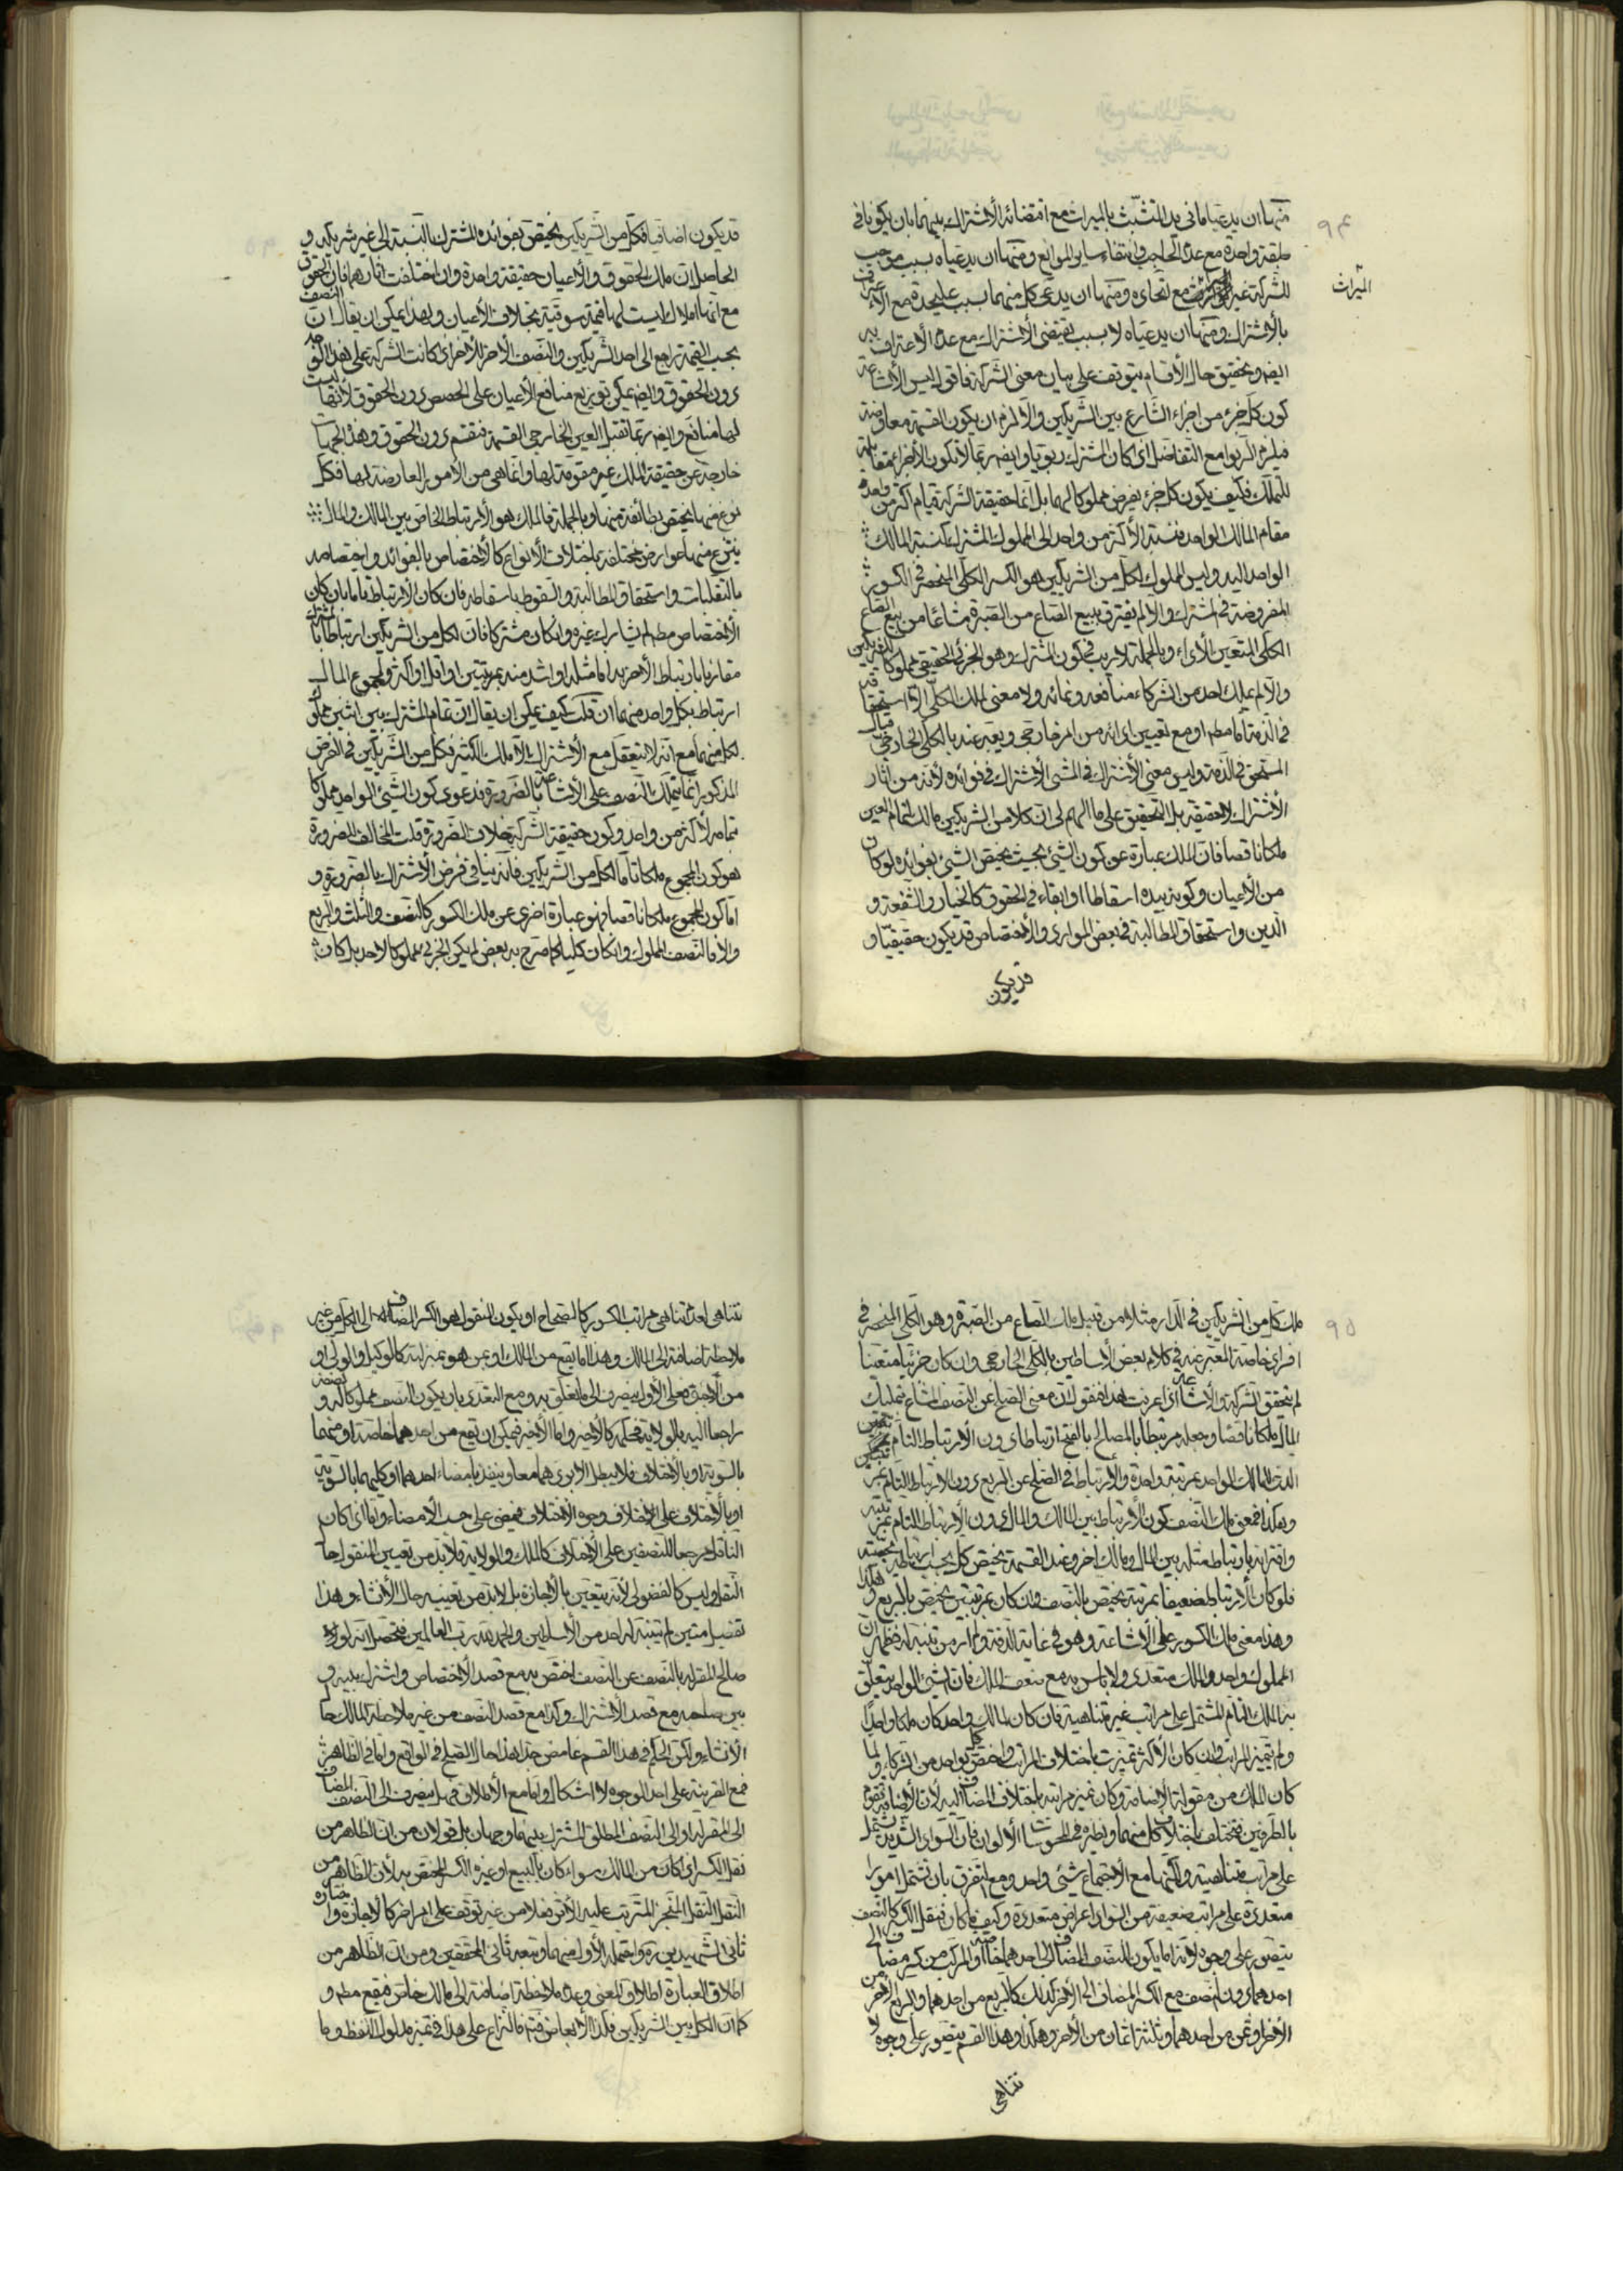 ٩٤
منها ان يدعيا ما في يد المتشبث بالميراث مع اقتضائه الاشتراك بينهما بان يكونا في
طبقة واحدة مع عدم الحاجب وانتفاء ساير الموانع ومنها ان يدعياه بسبب موجب
الميراث
للشركة غير مع اتحاده ومنها ان يدعي كل منهما بسبب عليحدة مع الاعتراف
بالاشتراك ومنها ان يدعياه لا بسبب يقتضي الاشتراك مع عدم الاعتراف به
ايضا وتحقيق حال الاقسام يتوقف على بيان معنى الشركة فاقول ليس الاشاعة
كون كل جزء من اجزاء الشايع بين الشريكين والا لزم ان يكون القسمة معاوضة
فيلزم الربوا مع التفاضل اذا كان المشترك ربويا وايضا ربما لا تكون الاجزاء مقابلة
للتملك فكيف يكون كل جزء يفرض مملوكا لهما بل انما حقيقة الشركة قيام اكثر من واحد
مقام المالك الواحد فنسبة الاكثر من واحد الى المملوك المشترك كنسبة المالك
الواحد اليه وليس المملوك لكل من الشريكين هو الكسر الكلي المنحصر في الكسور
المفروضة في المشترك والا لم يفترق بيع الصاع من الصبرة مشاعا من بيع الصاع
الكلي المتعين الاداء وبالجملة لا ريب في كون المشترك وهو الجزئي الحقيقي مملوكا للشريكين
والا لم يملك احد من الشركاء منافعه ونمائه ولا معنى لملك الكلي الا استحقاقه
في الذمة اما مطلقا او مع تعيين ادائه من امر خارجي ويعبر عنه بالكلي الخارجي قبال
المستحق في الذمة وليس معنى الاشتراك في الشيء الاشتراك في فوائده لانه من اثار
الاشتراك لا حقيقته بل التحقيق على ما الهم لي ان كلا من الشريكين مالك لتمام العين
ملكا ناقصا فان الملك عبارة عن كون الشيء بحيث يختص الشيء بفوائده لو كان
من الاعيان وكونه بيده اسقاطا او ابقاء في الحقوق كالخيار والشفعة و
الدين واستحقاق المطالبة في بعض الموارد والاختصاص قد يكون حقيقيا و
قد يكون
قد يكون اضافيا فكل من الشريكين يختص بفوائده المشترك بالنسبة الى غير شريكه و
الحاصل ان ملك الحقوق والاعيان حقيقة واحدة وان اختلفت اثارهما فان الحقوق
مع انها املاك ليست لها قيمة سوقية بخلاف الاعيان ولهذا يمكن ان يقال ان النصف
بحسب القيمة راجع الى احد الشريكين والنصف الاخر للاخر اذا كانت الشركة على هذا الوجه
دون الحقوق وايضا يمكن توزيع منافع الاعيان على الحصص دون الحقوق لانها ليست
لها منافع وايضا ربما تقبل العين الخارجي القسمة فتقسم دون الحقوق وهذه الجهات
خارجة عن حقيقة الملك غير مقومة لها وانما هي من الامور العارضة لها فكل
نوع منها يختص بطائفة منها وبالجملة فالملك هو الارتباط الخاص بين المالك والمال
ينتزع منها عوارض مختلفة باختلاف الانواع كالاختصاص بالفوائد واختصاصه
بالتقلبات واستحقاق المطالبة والسقوط باسقاطه فان كان الارتباط تاما بان كان
الاختصاص مطلقا لم يشارك غيره وان كان مشتركا فان لكل من الشريكين ارتباطا
مقارنا بارتباط الاخر به اما مثله او اشد منه بمرتبتين او اقل او اكثر ولمجموع المال
ارتباط بكل واحد منهما ان قلت كيف يمكن ان يقال ان تمام المشترك بين اثنين مملوك
لكل منهما مع انه لا يتعقل مع الاشتراك الا ملك الكسر فكل من الشريكين في الفرض
المذكور انما يتملك النصف على الاشاعة بالضرورة فدعوى كون الشيء الواحد مملوكا
تمامه لاكثر من واحد وكون حقيقة الشركة خلاف الضرورة قلت المخالف للضرورة
هو كون المجموع ملكا تاما لكل من الشريكين فانه ينافي فرض الاشتراك بالضرورة و
اما كون المجموع ملكا ناقصا فهو عبارة اخرى عن ملك الكسور كالنصف والثلث والربع
والا فالنصف المملوك وان كان كليا كما صرح به بعض لم يكن الجزئي مملوكا لاحد بل كان
٩٥
ملك كل من الشريكين في الدار مثلا من قبيل ملك الصاع من الصبرة وهو الكلي المنحصر في
افراد خاصة المعبر عنه في كلام بعض الاساطين بالكلي الخارجي وان كان جزئيا متعينا
لم يتحقق الشركة والاشاعة اذا عرفت هذا فنقول ان معنى الصلح عن النصف المشاع تمليك
المال ملكا ناقصا وجعله مرتبطا بالمصالح بالفتح ارتباطا دون الارتباط التام
الذي للمالك الواحد بمرتبة واحدة والارتباط في الصلح عن الربع دون الارتباط التام
وهكذا فمعنى ملك النصف كون الارتباط بين المالك والمال دون الارتباط التام بمرتبة
واقترانه بارتباط مثله بين المال ومالك اخر وعند القسمة يختص كل بحسب ارتباطه بحصته
فلو كان الارتباط ضعيفا بمرتبة يختص بالنصف وان كان بمرتبتين يختص بالربع وهكذا
وهذا معنى ملك الكسور على الاشاعة وهو في غاية الدقة ولم ار من تنبه له فظهر ان
المملوك واحد والملك متعدد ولا باس به مع ضعف الملك فان الشيء الواحد يتعلق
به الملك التام المشتمل على مراتب غير متناهية فان كان المالك واحد كان ملكا واحدا
ولم يتميز المراتب وان كان الاكثر تميزت باختلاف المراتب واختص كل بواحد من الشركاء ولما
كان الملك من مقولة الاضافة وكان تميز مراتبه باختلاف المضاف اليه لان الاضافة تتقوم
بالطرفين فتختلف باختلاف كل منهما ونظيره في المحسوسات الالوان فان السواد الشديد يشتمل
على مراتب متناهية ولكنها مع الاجتماع شيء واحد ومع التفرق بان تشتمل امورا
متعددة على مراتب ضعيفة من السواد اعراض متعددة وكيف ما كان فنقل الكسر كالنصف
يتصور على وجوه لانه اما يكون النصف المضاف الى احدهما خاصة او المركب من كسر مضاف الى
احدهما دون النصف مع الكسر المضاف الى الاخر كذلك كالربع من احدهما والربع من الاخر
الاخر او ثمن من احدهما وثلثة اثمان من الاخر وهكذا وهذا القسم يتصور على وجوه لا
تتناهى
تتناهى لعدم تناهي مراتب الكسور كالصحاح او يكون المنقول هو الكسر المضاف الى الكل من غير
ملاحظة اضافة الى المالك وهذا اما يقع من المالك او عمن هو بمنزلته كالوكيل والولي او
من الاجنبي فعلى الاول ينصرف الى ما تعلق به ومع التعدد بان يكون النصف مملوكا له و نصفه
راجعا اليه بالولاية فحكمه كالاخير واما الاخير فيمكن ان يقع من احدهما خاصة او منهما
بالسوية او بالاختلاف فلا يبطل الا بردهما معا وينفذ بامضاء احدهما او كليهما بالسوية
او بالاختلاف على الاختلاف وجوه الاختلاف فيمضي على حسب الامضاء واما اذا كان
الناقل مرجعا للنصفين على الاختلاف كالملك والولاية فلا بد من تعيين المنقول حال
النقل وليس كالفضولي لانه يتعين بالاجازة بل لا بد من تعيينه حال الانشاء وهذا
تفصيل متين لم يتنبه له احد من الاساطين والحمد لله رب العالمين فتحصل انه لو
صالح المقر له بالنصف عن النصف اختص به مع قصد الاختصاص واشترك بينه و
بين صاحبه مع قصد الاشتراك وكذا مع قصد النصف من غير ملاحظة المالك حال
الانشاء ولكن الحكم في هذا القسم غامض جدا هذا حال الصلح في الواقع واما في الظاهر
فمع القرينة على احد الوجوه لا اشكال واما مع الاطلاق فهل ينصرف الى النصف المضاف
الى المقر له او الى النصف المطلق المشترك بينهما وجهان بل قولان من ان الظاهر من
نقل الكسر اذا كان من المالك سواء كان بالبيع او غيره الكسر المختص به لان الظاهر من
النقل النقل المنجز المترتب عليه الاثر فعلا من غير توقف على امر اخر كالاجازة واختاره
ثاني الشهيدين ره واحتمله الاول منهما وتبعه ثاني المحققين ومن ان الظاهر من
اطلاق العبارة اطلاق المعنى وعدم ملاحظة اضافته الى مالك خاص فيقع مطلقا و
كما ان الكل بين الشريكين فكذا الابعاض فثم فالنزاع على هذا في تميز مدلول اللفظ وما